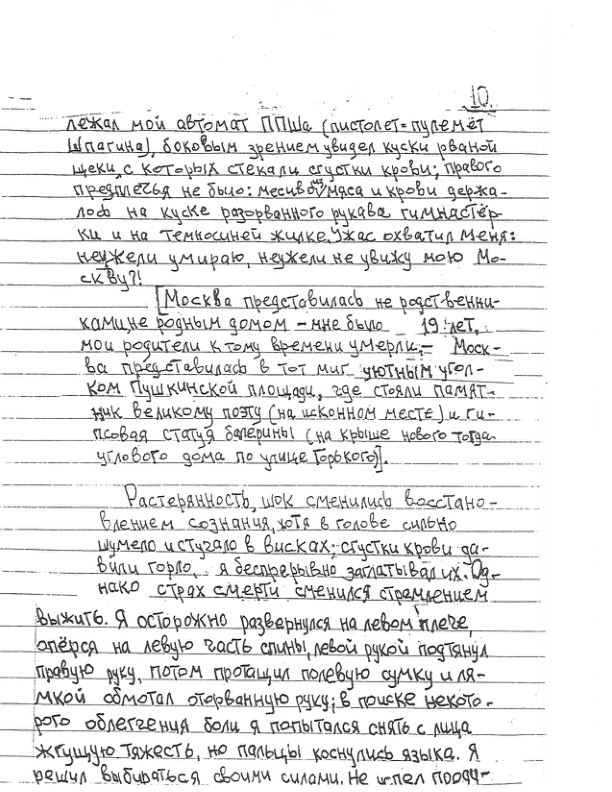 10.
лежал мой автомат ППШа (пистолет=пулемёт
Шпагина), боковым зрением увидел куски рваной
щеки, с которых стекали сгустки крови; правого
предплечья не было: месиво из мяса и крови держа-
лось на куске разорванного рукава гимнастёр-
ки и на темносиней жилке. Ужас охватил меня:
неужели умираю, неужели не увижу мою Мо-
скву?!
[Москва представилась не родственни-
ками, не родным домом – мне было 19 лет,
мои родители к тому времени умерли; – Моск-
ва представилась в тот миг уютным угол-
ком Пушкинской площади, где стояли памят-
ник великому поэту (на исконном месте) и ги-
псовая статуя балерины (на крыше нового тогда
углового дома по улице Горького].
Растерянность, шок сменились восстано-
влением сознания, хотя в голове сильно
шумело и стучало в висках; сгустки крови да-
вили горло, я беспрерывно заглатывал их. Од-
нако страх смерти сменился стремлением
выжить. Я осторожно развернулся на левом плече,
опёрся на левую часть спины, левой рукой подтянул
правую руку, потом протащил полевую сумку и ля-
мкой обмотал оторванную руку; в поиске некото-
рого облегчения боли я попытался снять с лица
жгущую тяжесть, но пальцы коснулись языка. Я
решил выбираться своими силами. Не успел проду-